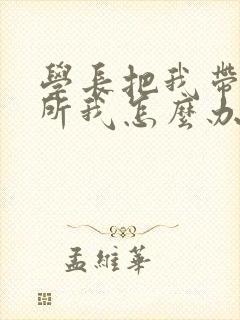 學長把我帶
所我怎麼办
孟維華